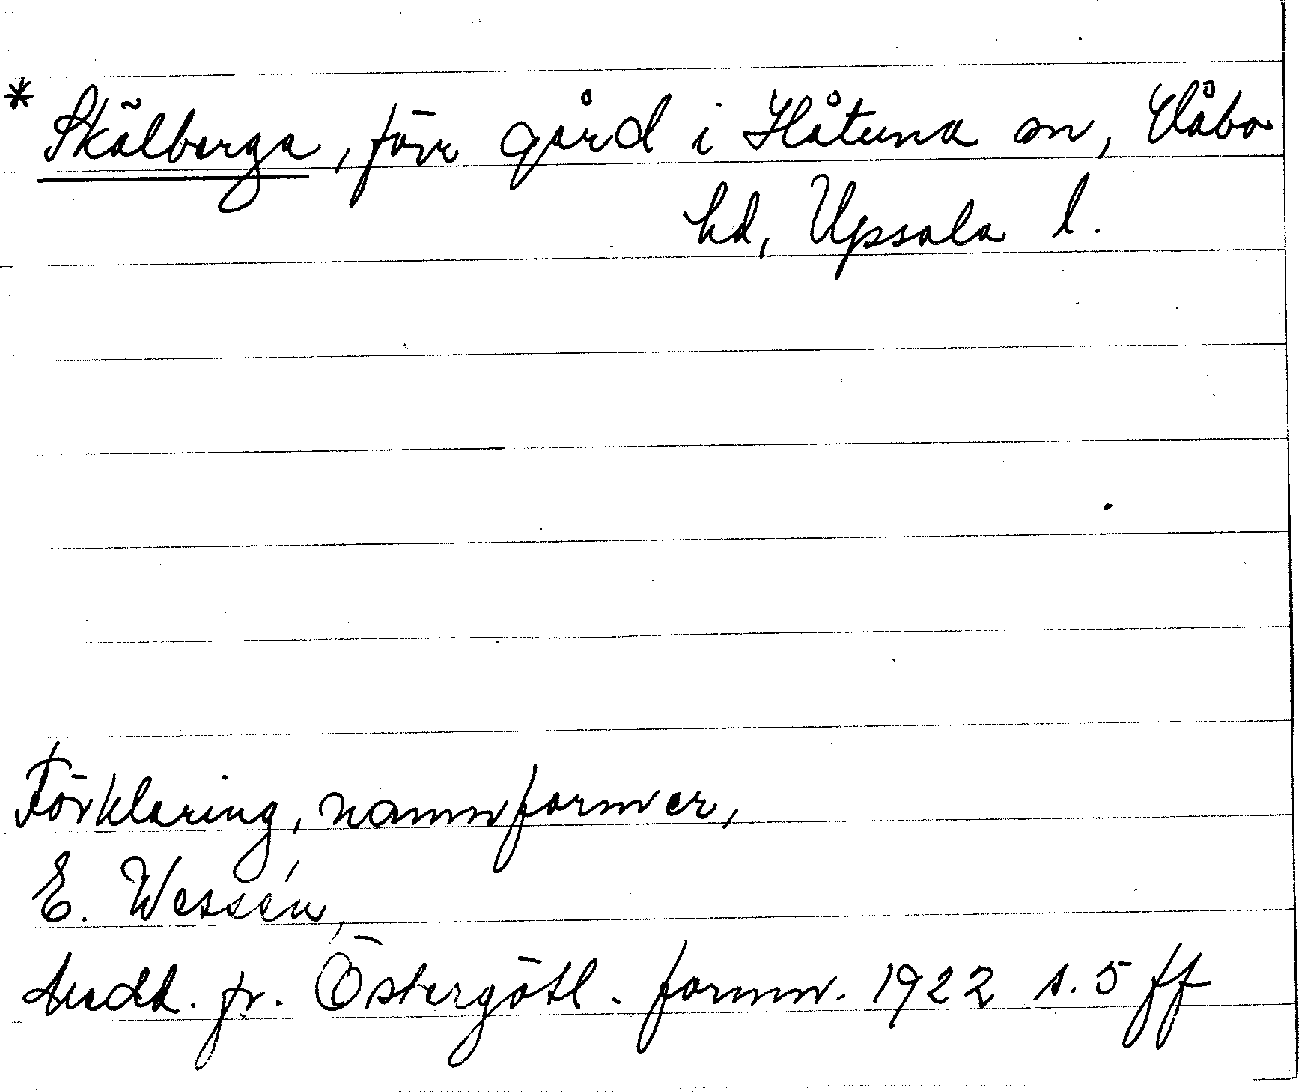 * Skälberga, förr gård i Håtuna sn, Håbo
hd, Upsala l.
Förklaring, namnformer,
E. Wessén,
Medd. fr. Östergötl. fornm. 1922 s. 5 ff